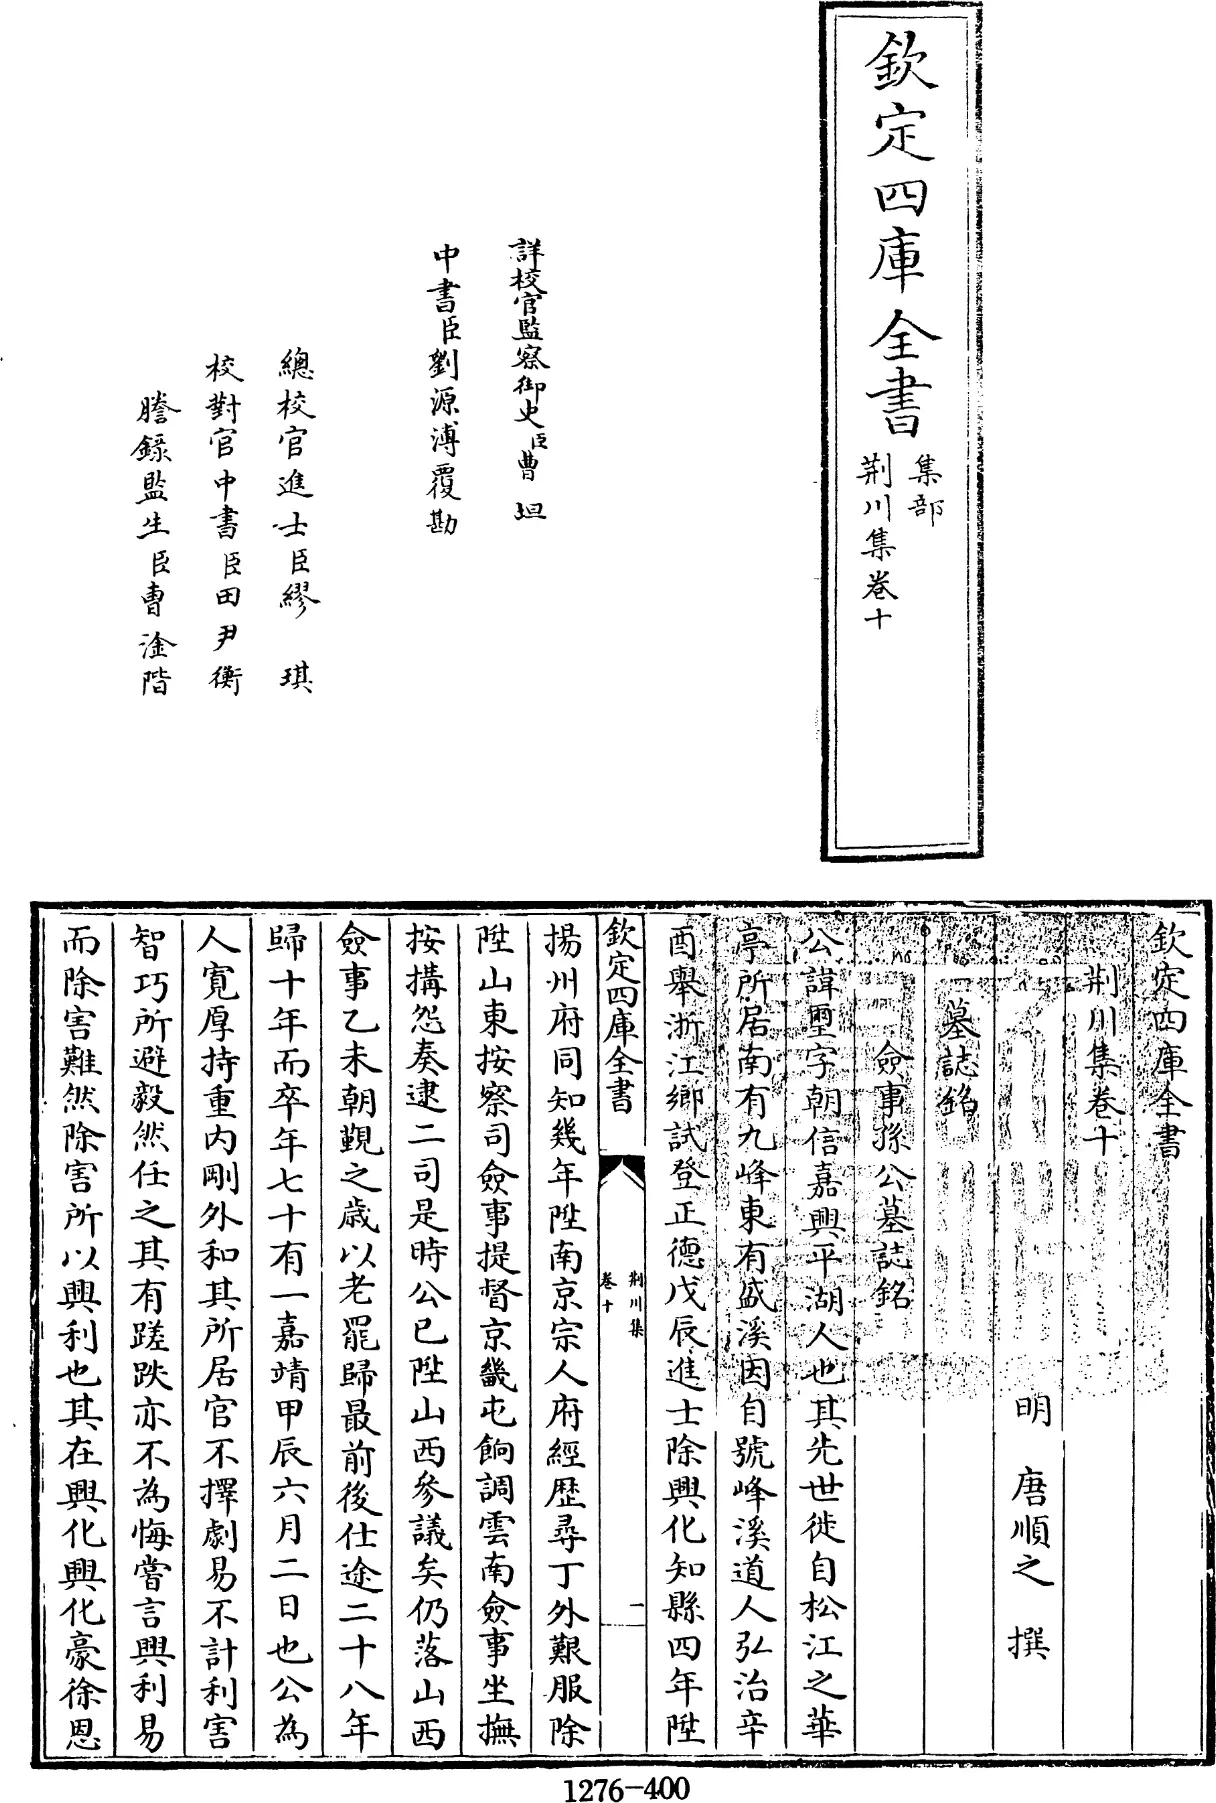 欽定四庫全書
集部
荆川集卷十
詳校官監察御史臣曹坦
中書臣劉源溥覆勘
總校官進士臣繆琪
校對官中書臣田尹衡
謄錄監生臣曹淦階
欽定四庫全書
荆川集卷十
明 唐順之 撰
墓誌銘
僉事孫公墓誌銘
公諱璽字朝信嘉興平湖人也其先世徙自松江之華
亭所居南有九峰東有盛溪因自號峰溪道人弘治辛
酉舉浙江鄉試登正德戊辰進士除興化知縣四年陞
欽定四庫全書
荆川集
卷十
一
揚州府同知幾年陞南京宗人府經歷尋丁外艱服除
陞山東按察司僉事提督京畿屯餉調雲南僉事坐撫
按搆怨奏逮二司是時公已陞山西參議矣仍落山西
僉事乙未朝覲之歲以老罷歸最前後仕途二十八年
歸十年而卒年七十有一嘉靖甲辰六月二日也公為
人寛厚持重内剛外和其所居官不擇劇易不計利害
智巧所避毅然任之其有蹉跌亦不為悔嘗言興利易
而除害難然除害所以興利也其在興化興化豪徐恩
1276-400